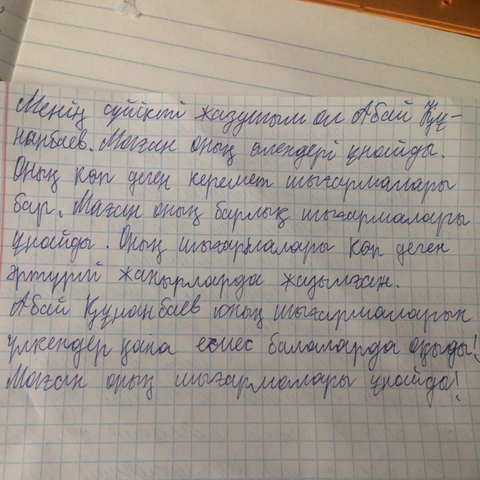 Менің сүйікті жазушым ол Абай Құ-
нанбаев. Маған оның өлендері ұнайды.
Оның көп деген керемет шығармалары
бар. Маған оның барлық шығармалары
ұнайды. Оның шығармалары көп деген
әртүрлі жанырларда жазылған.
Абай Құнанбаев оның шығармаларын
үлкендер қана емес балаларда оқыды!
Маған оның шығармалары ұнайды!